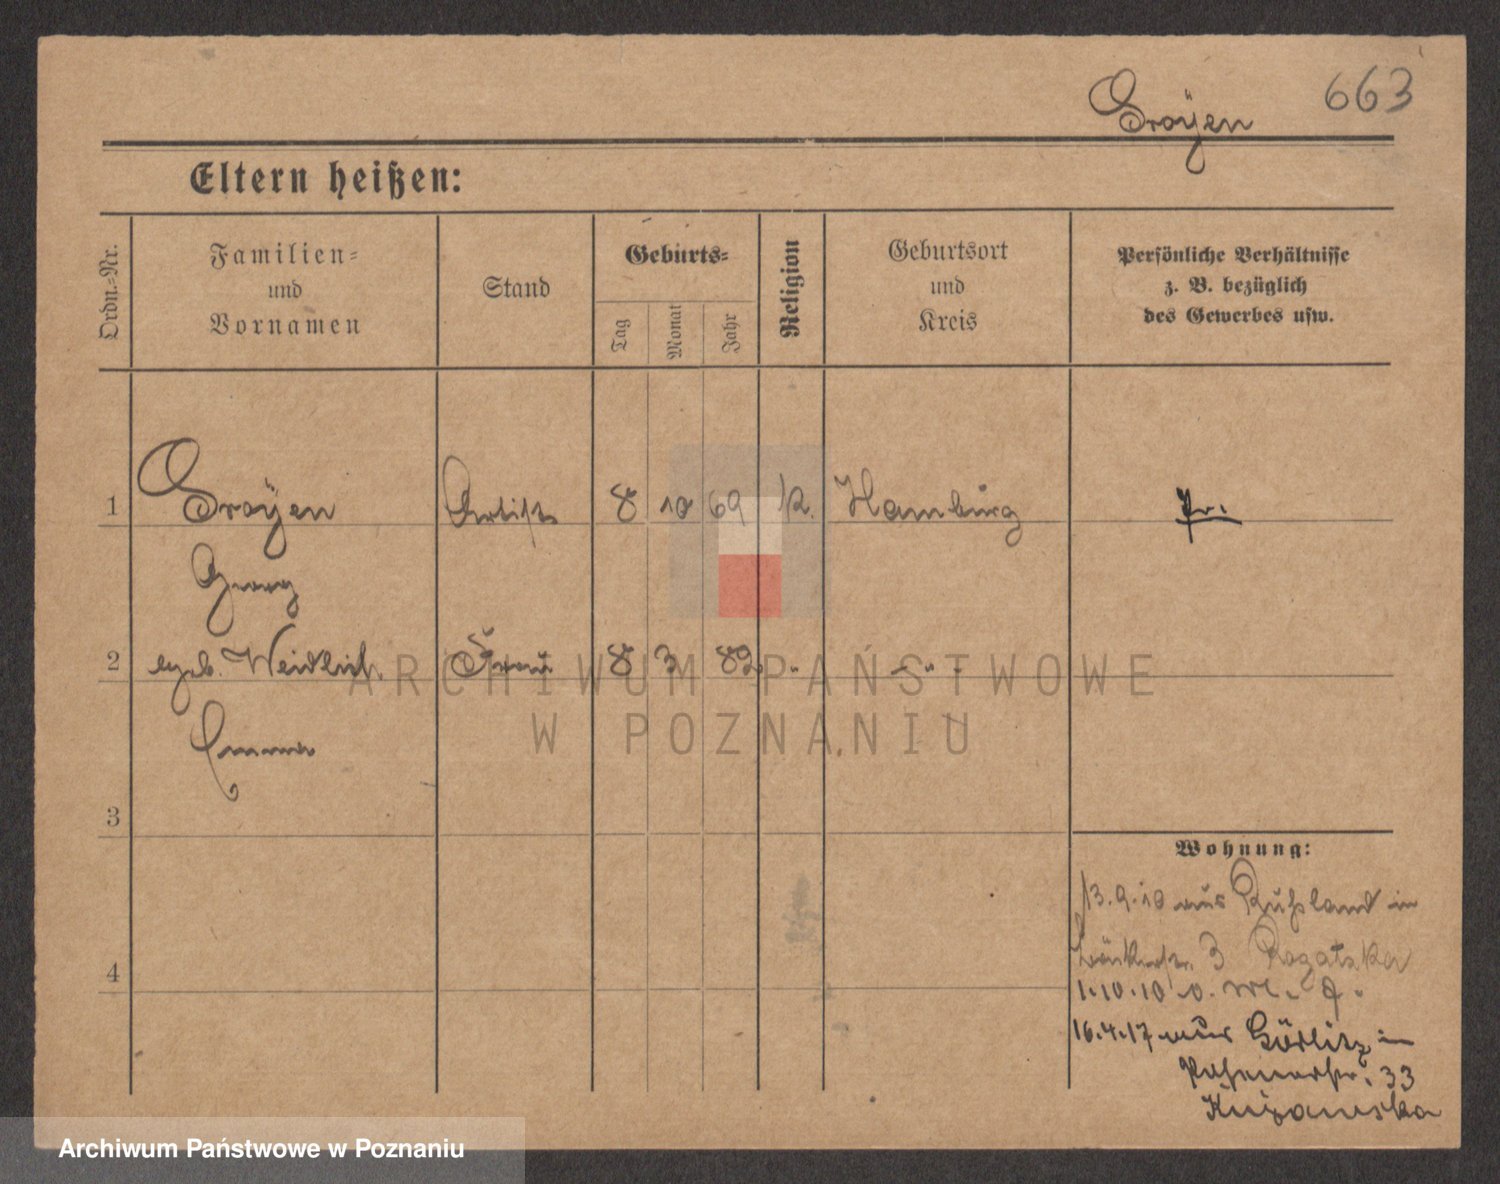 Groÿen 663
Eltern heißen:
Ordn.-Nr.
Familien-
und
Vornamen
Stand
Geburts-
Tag
Monat
Jahr
Religion
Geburtsort
und
Kreis
Persönliche Verhältnisse
z. B. bezüglich
des Gewerbes usw.
1 Groÿen Artist 8 10 69 k. Hamburg Pr.
Georg
2 geb. Weidlich Frau 8 3 82 " - " -
Emma
3
Wohnung:
13.9.10 aus Rußland in
3 Rogatzka
4
1.10.10
16.4.17 aus Görlitz in
Posenerstr. 33
ARCHIWUM PAŃSTWOWE
W POZNANIU
Archiwum Państwowe w Poznaniu